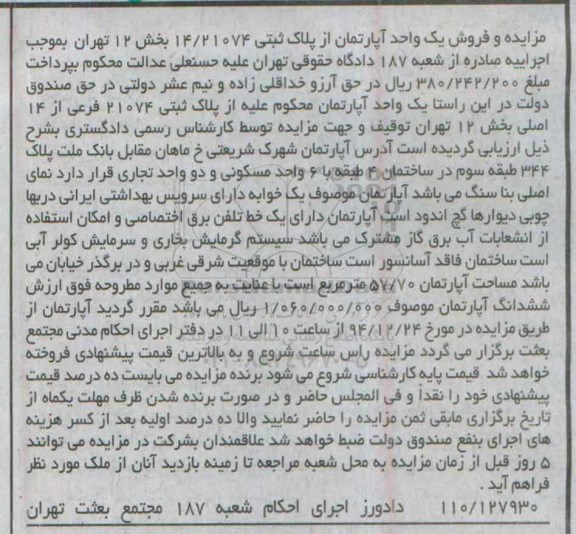 مزایده و فروش یک واحد آپارتمان از پلاک ثبتی ۱۴/۲۱۰۷۴ بخش ۱۲ تهران بموجب
اجراییه صادره از شعبه ۱۸۷ دادگاه حقوقی تهران علیه حسنعلی عدالت محکوم بپرداخت
مبلغ ۳۸۰/۲۴۲/۲۰۰ ریال در حق آرزو خداقلی زاده و نیم عشر دولتی در حق صندوق
دولت در این راستا یک واحد آپارتمان محکوم علیه از پلاک ثبتی ۲۱۰۷۴ فرعی از ۱۴
اصلی بخش ۱۲ تهران توقیف و جهت مزایده توسط کارشناس رسمی دادگستری بشرح
ذیل ارزیابی گردیده است آدرس آپارتمان شهرک شریعتی خ ماهان مقابل بانک ملت پلاک
۳۴۴ طبقه سوم در ساختمان ۴ طبقه با ۶ واحد مسکونی و دو واحد تجاری قرار دارد نمای
اصلی بنا سنگ می باشد آپارتمان موصوف یک خوابه دارای سرویس بهداشتی ایرانی دربها
چوبی دیوارها گچ اندود است آپارتمان دارای یک خط تلفن برق اختصاصی و امکان استفاده
از انشعابات آب برق گاز مشترک می باشد سیستم گرمایش بخاری و سرمایش کولر آبی
است ساختمان فاقد آسانسور است ساختمان با موقعیت شرقی غربی و در برگذر خیابان می
باشد مساحت آپارتمان ۵۷/۷۰ مترمربع است با عنایت به جمیع موارد مطروحه فوق ارزش
ششدانگ آپارتمان موصوف ۱/۰۶۰/۰۰۰/۰۰۰ ریال می باشد مقرر گردید آپارتمان از
طریق مزایده در مورخ ۹۴/۱۲/۲۴ از ساعت ۱۰ الی ۱۱ در دفتر اجرای احکام مدنی مجتمع
بعثت برگزار می گردد مزایده راس ساعت شروع و به بالاترین قیمت پیشنهادی فروخته
خواهد شد قیمت پایه کارشناسی شروع می شود برنده مزایده می بایست ده درصد قیمت
پیشنهادی خود را نقدا و فی المجلس حاضر و در صورت برنده شدن ظرف مهلت یکماه از
تاریخ برگزاری مابقی ثمن مزایده را حاضر نمایید والا ده درصد اولیه بعد از کسر هزینه
های اجرای بنفع صندوق دولت ضبط خواهد شد علاقمندان بشرکت در مزایده می توانند
۵ روز قبل از زمان مزایده به محل شعبه مراجعه تا زمینه بازدید آنان از ملک مورد نظر
فراهم آید .
۱۱۰/۱۲۷۹۳۰ دادورز اجرای احکام شعبه ۱۸۷ مجتمع بعثت تهران